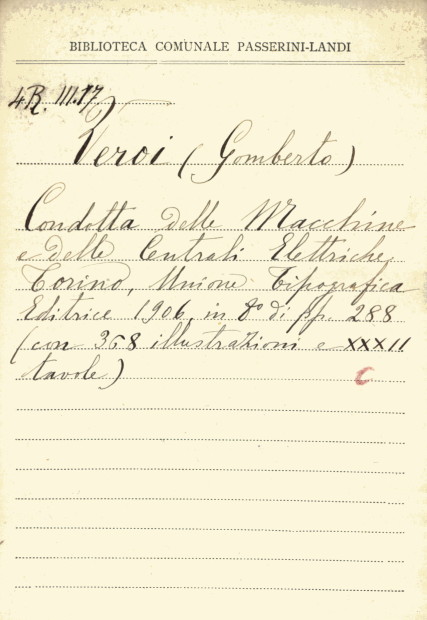 BIBLIOTECA COMUNALE PASSERINI-LANDI
4R. III.17
Veroi (Gomberto)
Condotta delle Macchine
e delle Centrali Elettriche,
Torino, Unione Tipografica
Editrice 1906, in 8º di pp. 288
(con 358 illustrazioni e XXXII
tavole)
C